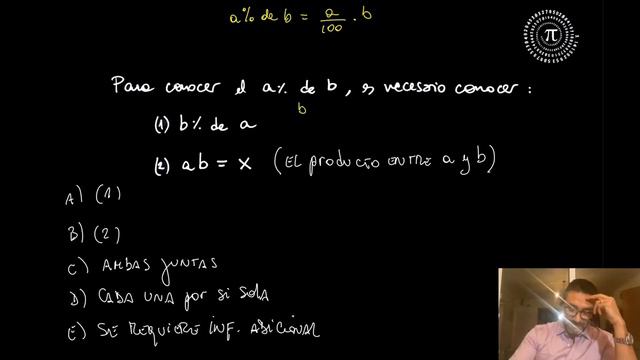 a% de b = a/100 · b
π
Para conocer el a% de b, es necesario conocer:
b
(1) b% de a
(2) ab = x (EL producto ENTRE a y b)
A) (1)
B) (2)
C) AMBAS JUNTAS
D) CADA UNA por sí sola
E) SE REQUIERE INF. ADICIONAL